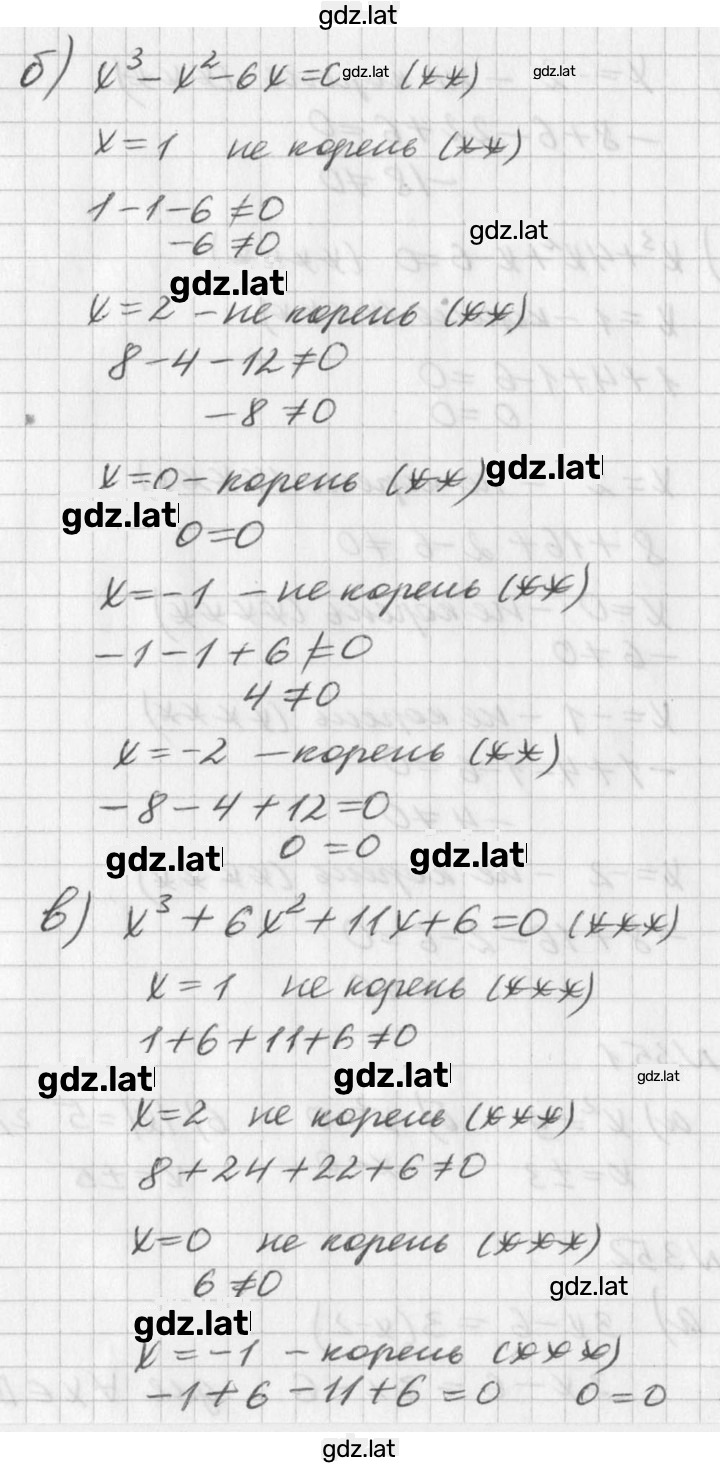 gdz.lat
б) x³ - x² - 6x = 0 (**) gdz.lat gdz.lat
x = 1 не корень (**)
1 - 1 - 6 ≠ 0
gdz.lat
-6 ≠ 0
gdz.lat
x = 2 - не корень (**)
8 - 4 - 12 ≠ 0
-8 ≠ 0
x = 0 - корень (**) gdz.lat
gdz.lat
0 = 0
x = -1 - не корень (**)
-1 - 1 + 6 ≠ 0
4 ≠ 0
x = -2 - корень (**)
-8 - 4 + 12 = 0
gdz.lat 0 = 0 gdz.lat
в) x³ + 6x² + 11x + 6 = 0 (***)
gdz.lat
x = 1 не корень (***)
1 + 6 + 11 + 6 ≠ 0
gdz.lat gdz.lat gdz.lat
x = 2 не корень (***)
8 + 24 + 22 + 6 ≠ 0
x = 0 не корень (***)
6 ≠ 0 gdz.lat
gdz.lat
x = -1 - корень (***)
-1 + 6 - 11 + 6 = 0 0 = 0
gdz.lat